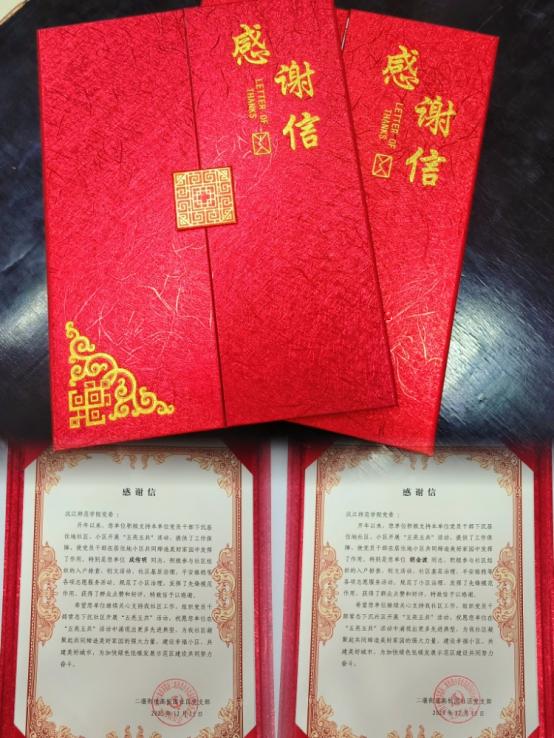 感谢信
LETTER OF
THANKS
感谢信
LETTER OF
THANKS
感谢信
汉江师范学院党委：
开年以来，您单位积极支持本单位党员干部下沉居
住地社区、小区开展“五亮五共”活动，提供了工作保
障，使党员干部在居住地小区共同缔造美好家园中发挥
了作用，特别是您单位 成传明 同志，积极参与社区组
织的入户排查、创文活动、社区基层治理、平安巡逻等
各项志愿服务活动，规范了小区治理，发挥了先锋模范
作用，获得了群众点赞和好评，特致信予以感谢。
希望您单位继续关心支持我社区工作，组织党员干
部常态下沉社区开展“五亮五共”活动，祝愿您单位在
“五亮五共”活动中涌现出更多先进典型，为我社区凝
聚起共同缔造美好家园的强大力量，建设幸福小区，共
建美好城市，为加快绿色低碳发展示范区建设共同努力
奋斗。
二堰街道
社区党支部
12月11日
感谢信
汉江师范学院党委：
开年以来，您单位积极支持本单位党员干部下沉居
住地社区、小区开展“五亮五共”活动，提供了工作保
障，使党员干部在居住地小区共同缔造美好家园中发挥
了作用，特别是您单位 同志，积极参与社区组
织的入户排查、创文活动、社区基层治理、平安巡逻等
各项志愿服务活动，规范了小区治理，发挥了先锋模范
作用，获得了群众点赞和好评，特致信予以感谢。
希望您单位继续关心支持我社区工作，组织党员干
部常态下沉社区开展“五亮五共”活动，祝愿您单位在
“五亮五共”活动中涌现出更多先进典型，为我社区凝
聚起共同缔造美好家园的强大力量，建设幸福小区，共
建美好城市，为加快绿色低碳发展示范区建设共同努力
奋斗。
二堰街道
社区党支部
12月11日